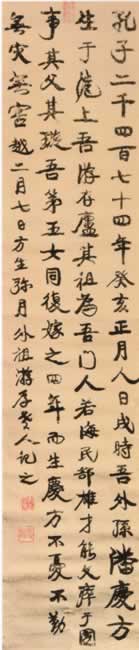 孔子二千四百七十四年癸亥正月人日戌時吾外孫潘慶方
生于滬上吾游存廬其祖為吾門人若海民部雄才能文瘁于國
事其父其璇吾第五女同復嫁之四年而生慶方不憂不勤
無灾無害越二月七日方生弥月外祖游存老人記之